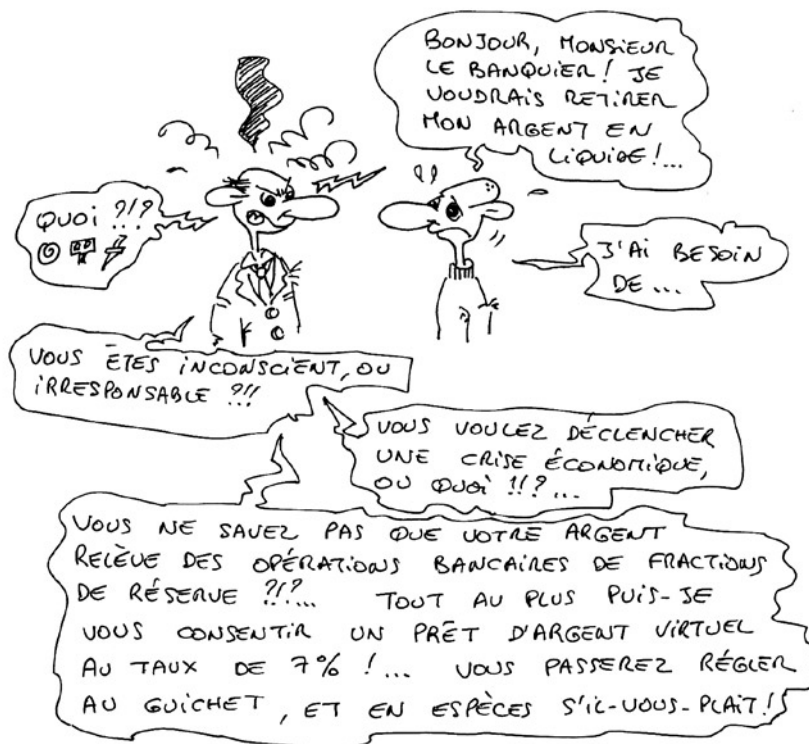 BONJOUR, MONSIEUR
LE BANQUIER! JE
VOUDRAIS RETIRER
MON ARGENT EN
LIQUIDE!...
QUOI ?!?
J'AI BESOIN
DE...
VOUS ÊTES INCONSCIENT, OU
IRRESPONSABLE ?!!
VOUS VOULEZ DÉCLENCHER
UNE CRISE ÉCONOMIQUE,
OU QUOI !!?...
VOUS NE SAVEZ PAS QUE VOTRE ARGENT
RELÈVE DES OPÉRATIONS BANCAIRES DE FRACTIONS
DE RÉSERVE ?!?... TOUT AU PLUS PUIS-JE
VOUS CONSENTIR UN PRÊT D'ARGENT VIRTUEL
AU TAUX DE 7% !... VOUS PASSEREZ RÉGLER
AU GUICHET, ET EN ESPÈCES S'IL-VOUS-PLAIT!